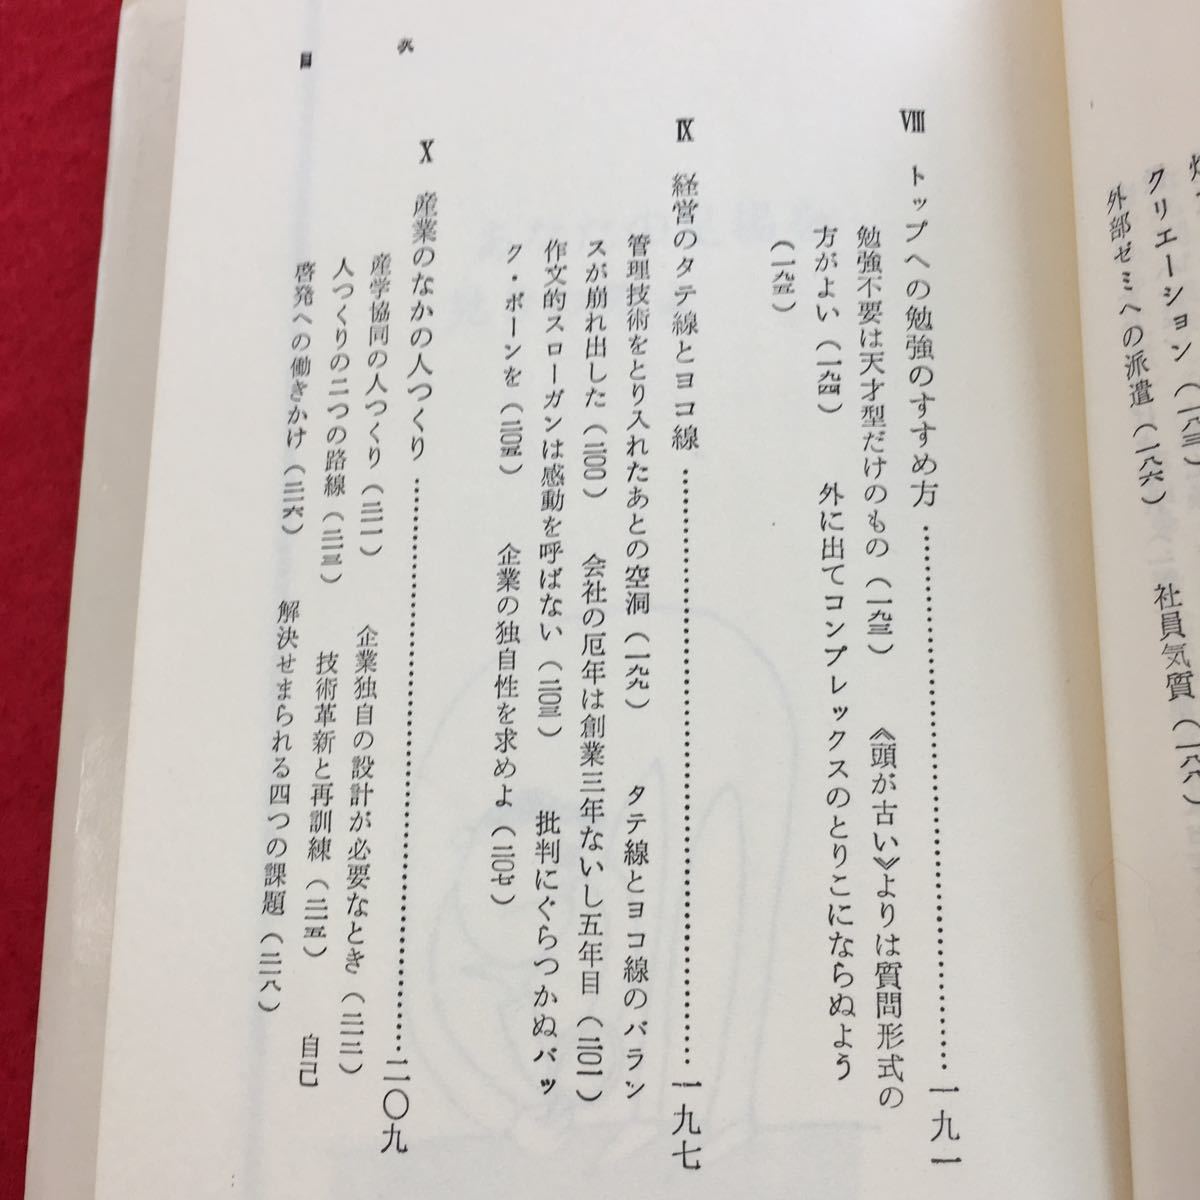 クリエーション（一八三）
外部ゼミへの派遣（一八六）　社員気質（一八八）
Ⅷ　トップへの勉強のすすめ方……………………一九一
勉強不要は天才型だけのもの（一九三）　《頭が古い》よりは質問形式の
方がよい（一九四）　外に出てコンプレックスのとりこにならぬよう
（一九五）
Ⅸ　経営のタテ線とヨコ線……………………一九七
管理技術をとり入れたあとの空洞（一九九）　タテ線とヨコ線のバラン
スが崩れ出した（二〇〇）　会社の厄年は創業三年ないし五年目（二〇一）
作文的スローガンは感動を呼ばない（二〇三）　批判にぐらつかぬバッ
ク・ボーンを（二〇五）　企業の独自性を求めよ（二〇七）
Ⅹ　産業のなかの人つくり……………………二〇九
産学協同の人つくり（二一一）　企業独自の設計が必要なとき（二一二）
人つくりの二つの路線（二一三）　技術革新と再訓練（二一五）　自己
啓発への働きかけ（二一六）　解決せまられる四つの課題（二一八）
目次